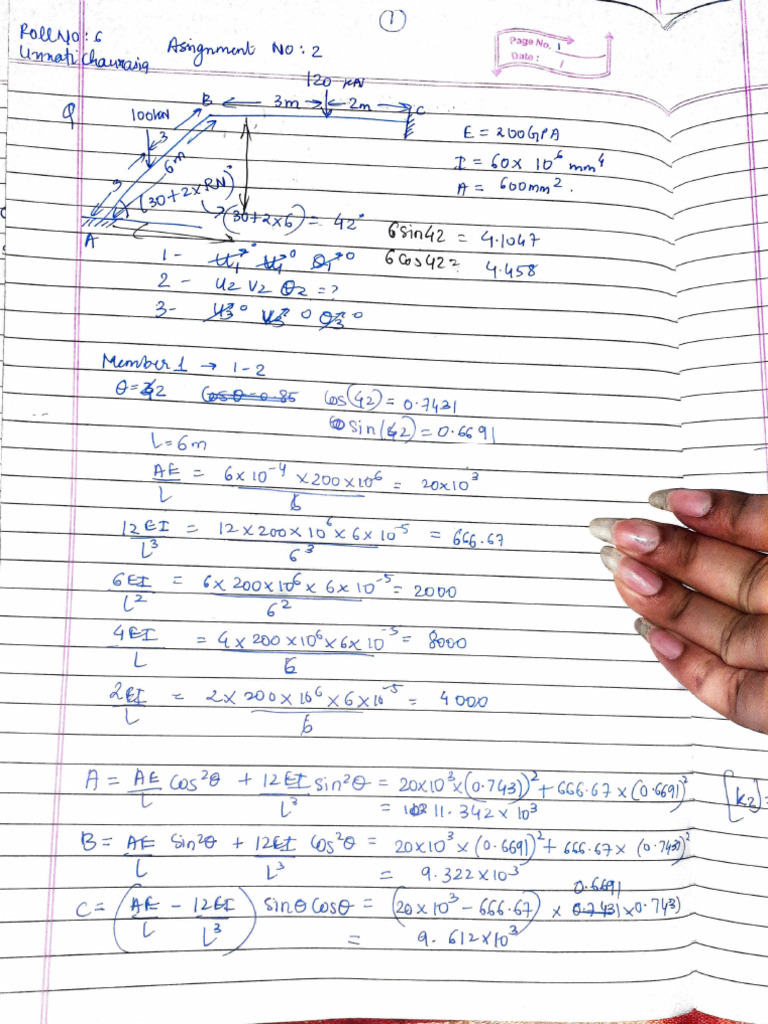 1
Roll No: 6
Unnati Chaurasia
Assignment No: 2
Page No. 1
Date: /
Q
120 kN
B 3m 2m C
100kN
3
6m
3
(30+2×RN)°
(30+2×6) = 42°
A
E = 200GPA
I = 60×10⁶ mm⁴
A = 600mm².
6sin42 = 4.1047
6cos42 = 4.458
1 - u₁ ⁰ v₁ ⁰ θ₁ ⁰
2 - u₂ v₂ θ₂ = ?
3 - u₃ ⁰ v₃ ⁰ θ₃ ⁰
Member 1 → 1-2
θ=42 Cosθ=0.85 Cos(42) = 0.7431
sin(42) = 0.6691
L=6m
AE/L = 6×10⁻⁴ ×200×10⁶/6 = 20×10³
12EI/L³ = 12×200×10⁶×6×10⁻⁵/6³ = 666.67
6EI/L² = 6×200×10⁶×6×10⁻⁵/6² = 2000
4EI/L = 4×200×10⁶×6×10⁻⁵/6 = 8000
2EI/L = 2×200×10⁶×6×10⁻⁵/6 = 4000
A = AE/L cos²θ + 12EI/L³ sin²θ = 20×10³×(0.743)² + 666.67×(0.6691)²
= 11.342×10³
[k₂] =
B = AE/L sin²θ + 12EI/L³ cos²θ = 20×10³×(0.6691)² + 666.67×(0.743)²
= 9.322×10³
C = (AE/L - 12EI/L³) sinθcosθ = (20×10³ - 666.67) × 0.7431 0.6691 ×0.743)
= 9.612×10³